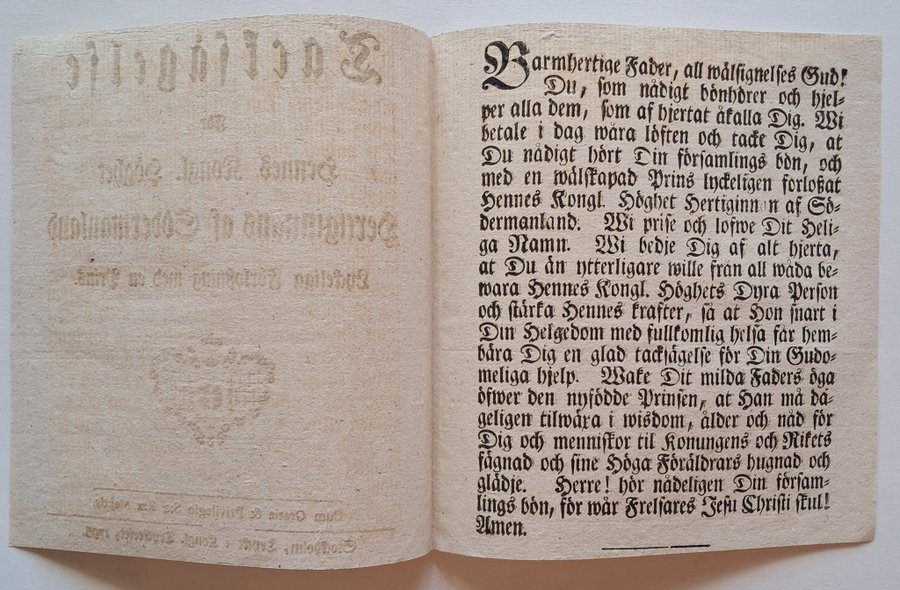 Tacksägelse
För
Hennes Kongl. Höghet
Hertiginnans af Södermanland
Lyckeliga Förlossning med en Prins.
Cum Gratia & Privilegio S:æ R:æ Maj:tis.
Stockholm, Tryckt i Kongl. Tryckeriet,
Barmhertige Fader, all wälsignelses Gud!
Du, som nådigt bönhörer och hjel-
per alla dem, som af hjertat åkalla Dig. Wi
betale i dag wåra löften och tacke Dig, at
Du nådigt hört Din församlings bön, och
med en wälskapad Prins lyckeligen forloßat
Hennes Kongl. Höghet Hertiginnan af Sö-
dermanland. Wi prise och lofwe Dit Heli-
ga Namn. Wi bedje Dig af alt hjerta,
at Du än ytterligare wille från all wåda be-
wara Hennes Kongl. Höghets Dyra Person
och stärka Hennes krafter, så at Hon snart i
Din Helgedom med fullkomlig helsa får hem-
bära Dig en glad tacksägelse för Din Gudo-
meliga hjelp. Wake Dit milda Faders öga
öfwer den nyfödde Prinsen, at Han må da-
geligen tilwäxa i wisdom, ålder och nåd för
Dig och menniskor til Konungens och Rikets
fägnad och sine Höga Föräldrars hugnad och
glädje. Herre! hör nådeligen Din försam-
lings bön, för wår Frelsares Jesu Christi skul!
Amen.